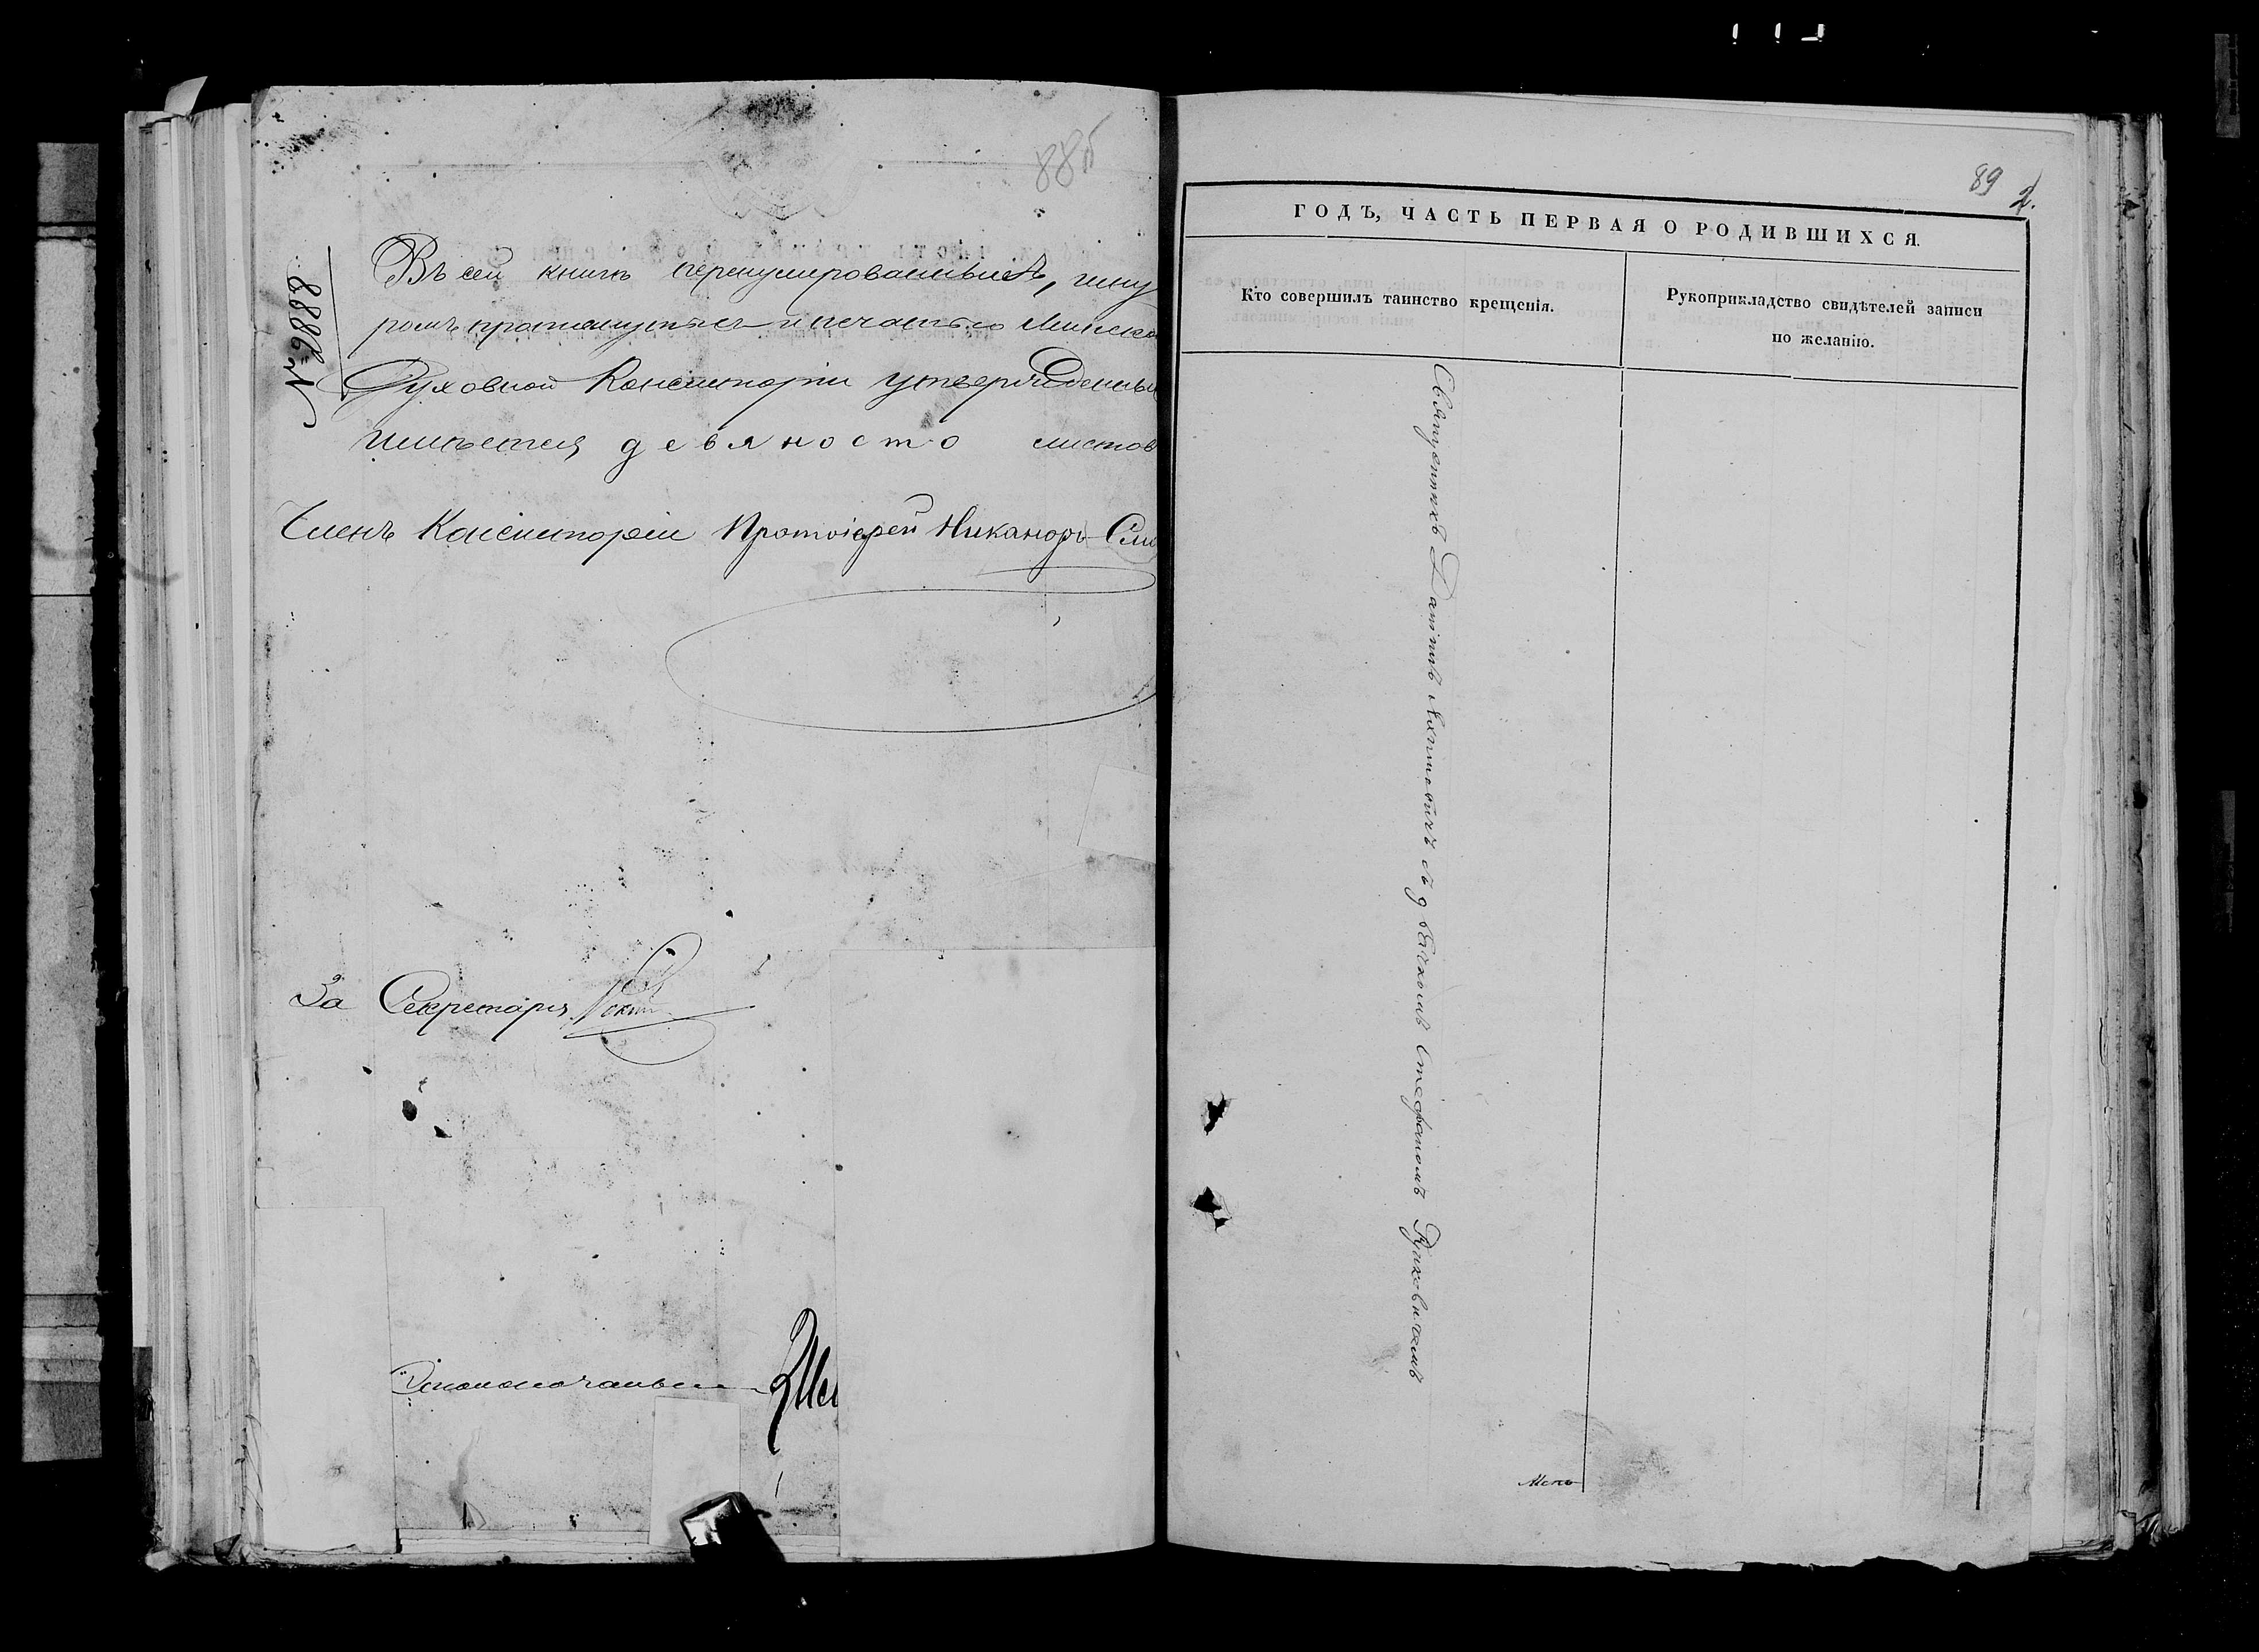 88б
№ 8886
Въ сей книгѣ перенумерованныхъ, шну
ромъ протянутыхъ и печатью Минско
Духовной Консисторіи утвержденны
имѣется девяносто листов
Членъ Консисторіи Протоіерей Никаноръ
За Секретаря
89 2.
ГОДЪ, ЧАСТЬ ПЕРВАЯ О РОДИВШИХСЯ.
Кто совершилъ таинство крещенія.
Рукоприкладство свидѣтелей записи
по желанію.
Священникъ Даніилъ съ дьячкомъ Стефаномъ